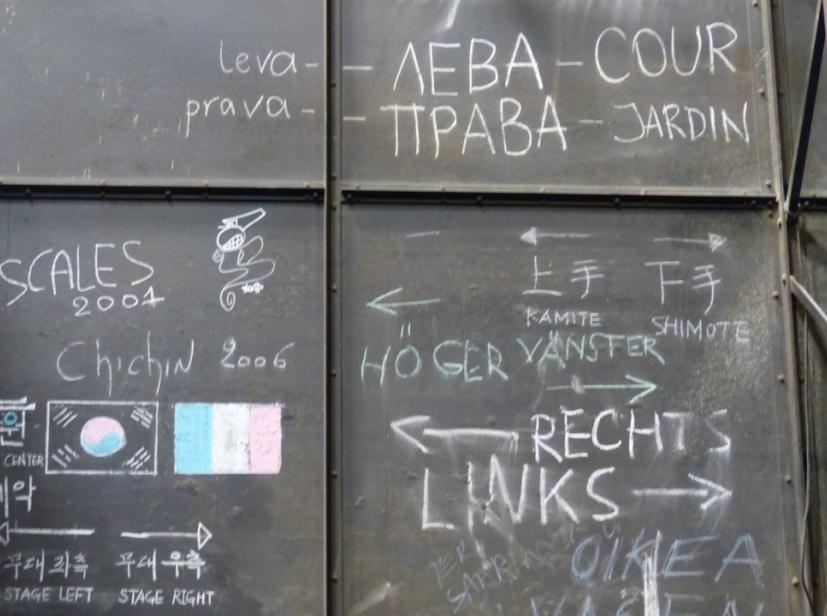 leva - - ЛЕВА - COUR
prava - - ПРАВА - JARDIN
SCALES
2001
Chichin 2006
CENTER
악
무대 좌측 무대 우측
STAGE LEFT STAGE RIGHT
上手 下手
KAMITE SHIMOTE
HÖGER VÄNSTER
RECHTS
LINKS
OIKEA